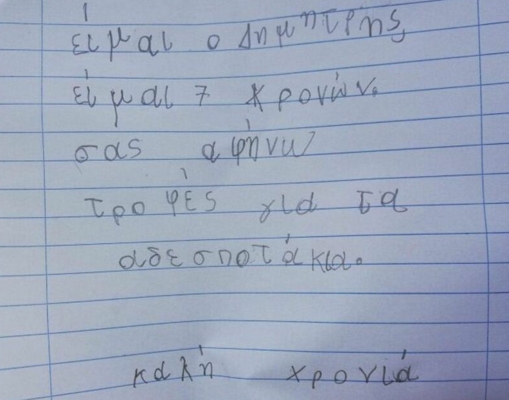 είμαι ο Δημητρης
είμαι 7 χρονών.
σας αφήνω
τροφές για τα
αδεσποτάκια.
καλή χρονιά